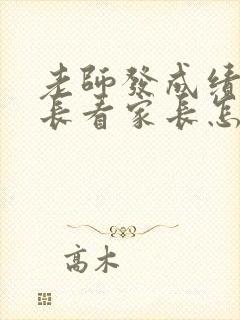 老師發成績
長看家長怎
高木